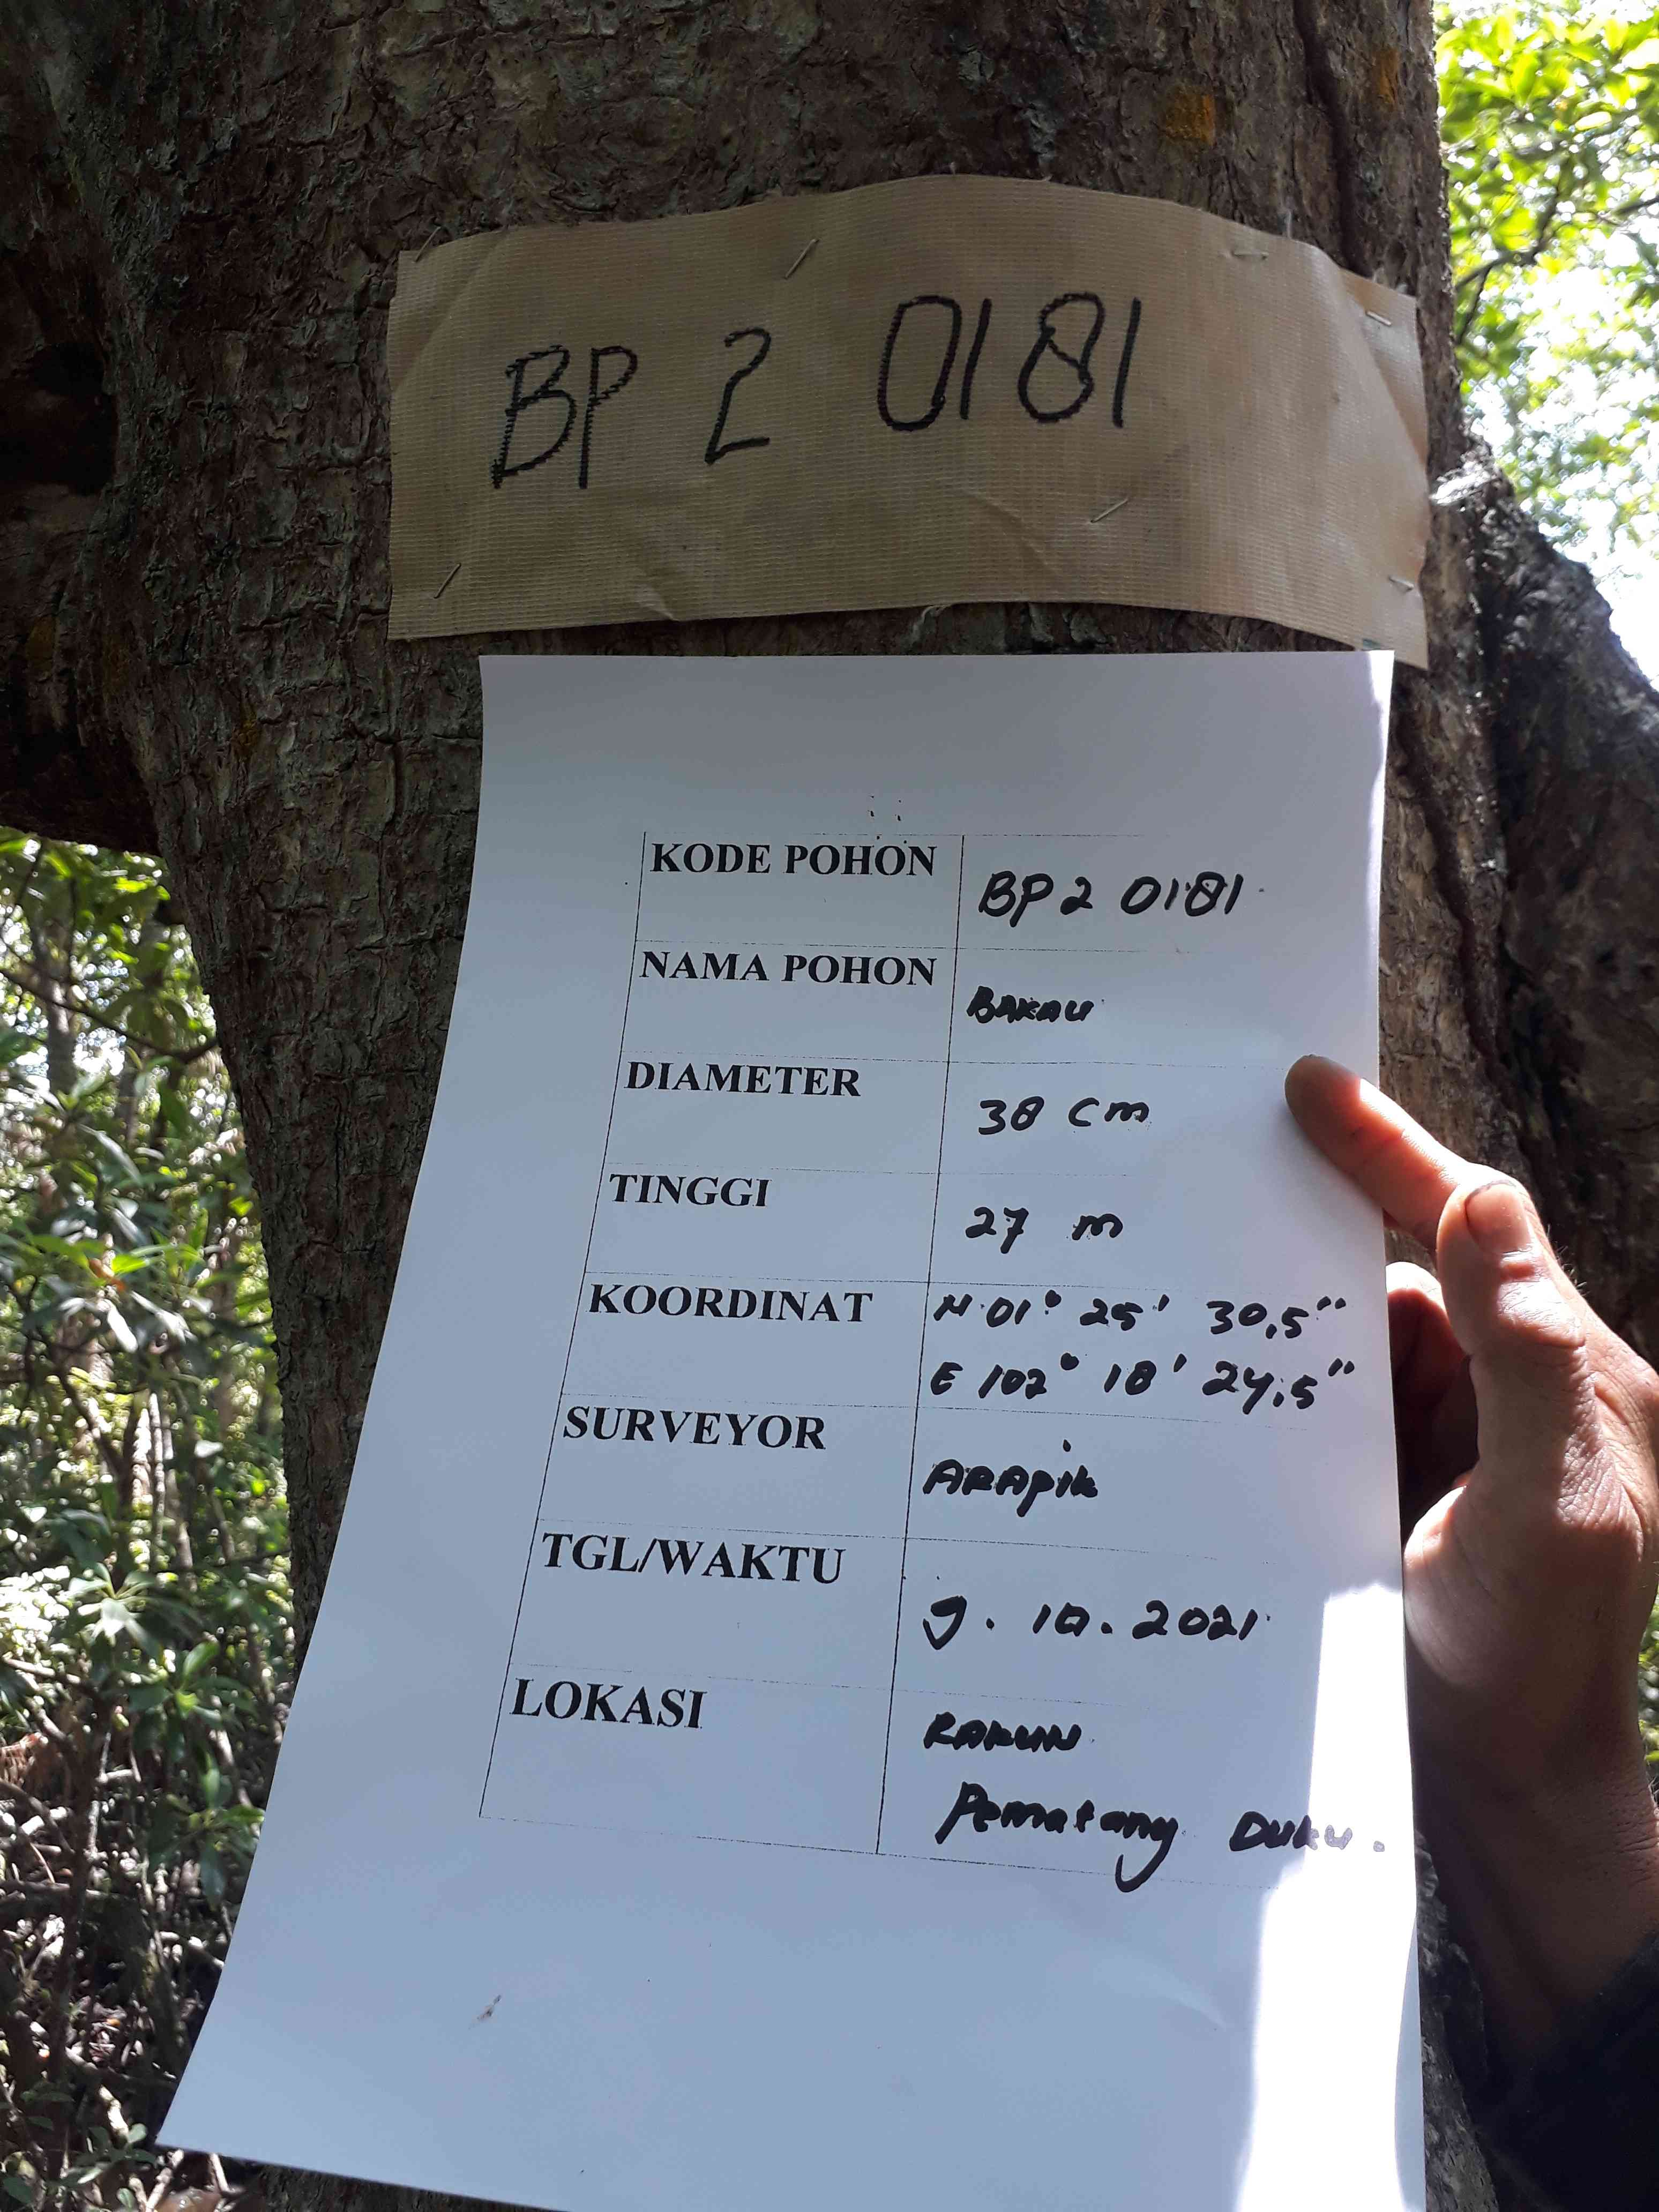 BP 2 0181
KODE POHON BP2 0181
NAMA POHON BAKAU
DIAMETER 38 cm
TINGGI 27 m
KOORDINAT N 01° 25' 30,5"
E 102° 18' 24,5"
SURVEYOR ARAPik
TGL/WAKTU 9. 10. 2021
LOKASI RAKUN
Pematang DUKU.